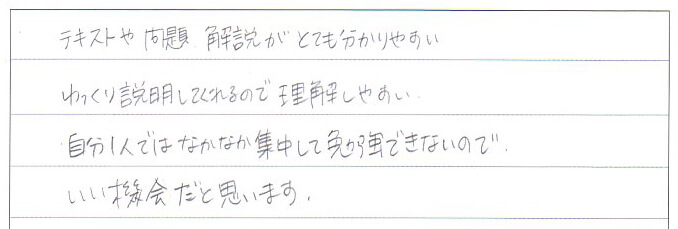 テキストや問題 解説がとても分かりやすい
ゆっくり説明してくれるので理解しやすい.
自分1人ではなかなか集中して勉強できないので.
いい機会だと思います.